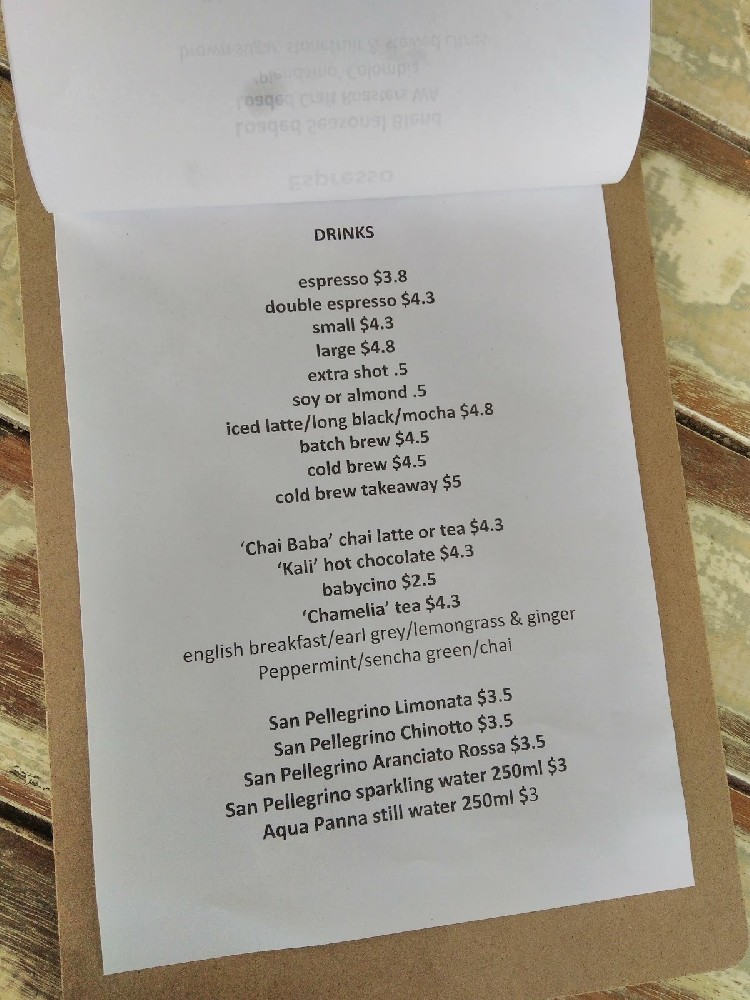 brown sugar, stonefruit & stewed citrus
Colombia
Loaded Craft Roasters WA
Loaded Seasonal Blend
Espresso
DRINKS
espresso $3.8
double espresso $4.3
small $4.3
large $4.8
extra shot .5
soy or almond .5
iced latte/long black/mocha $4.8
batch brew $4.5
cold brew $4.5
cold brew takeaway $5
‘Chai Baba’ chai latte or tea $4.3
‘Kali’ hot chocolate $4.3
babycino $2.5
‘Chamelia’ tea $4.3
english breakfast/earl grey/lemongrass & ginger
Peppermint/sencha green/chai
San Pellegrino Limonata $3.5
San Pellegrino Chinotto $3.5
San Pellegrino Aranciato Rossa $3.5
San Pellegrino sparkling water 250ml $3
Aqua Panna still water 250ml $3